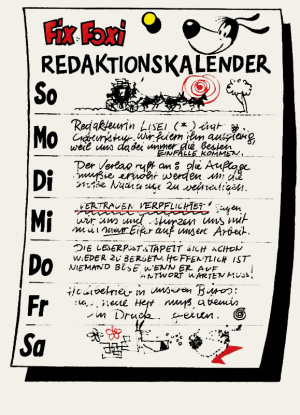 Fix und Foxi
REDAKTIONSKALENDER
So
Mo Redakteurin LISEI (*) hat
Geburtstag. Wir feiern ihn ausgiebig
weil uns dabei immer die besten
EINFÄLLE KOMMEN.
Di Der Verlag ruft an: die Auflage
mußte erhöht werden um die
große Nachfrage zu befriedigen.
Mi VERTRAUEN VERPFLICHTET!
wir uns und stürzen uns mit
Eifer auf unsere Arbeit.
Do DIE LESERPOST STAPELT SICH SCHON
WIEDER ZU BERGEN. HOFFENTLICH IST
NIEMAND BÖSE WENN ER AUF
ANTWORT WARTEN MUSS!
Fr in unseren Büros:
neue Heft muß abends
in Druck gehen.
Sa